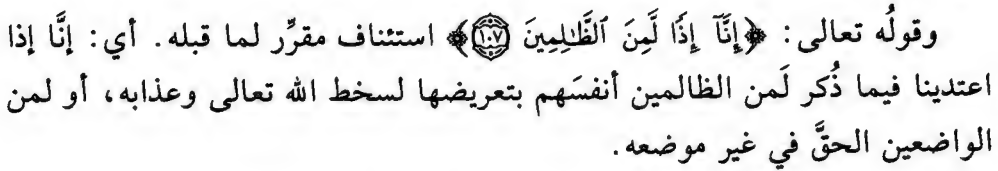 وقولُه تعالى: ﴿إِنَّآ إِذًا لَّمِنَ ٱلظَّٰلِمِينَ ۝١٠٧﴾ استئناف مقرِّر لما قبله. أي: إنَّا إذا
اعتدينا فيما ذُكر لَمن الظالمين أنفسَهم بتعريضها لسخط الله تعالى وعذابه، أو لمن
الواضعين الحقَّ في غير موضعه.